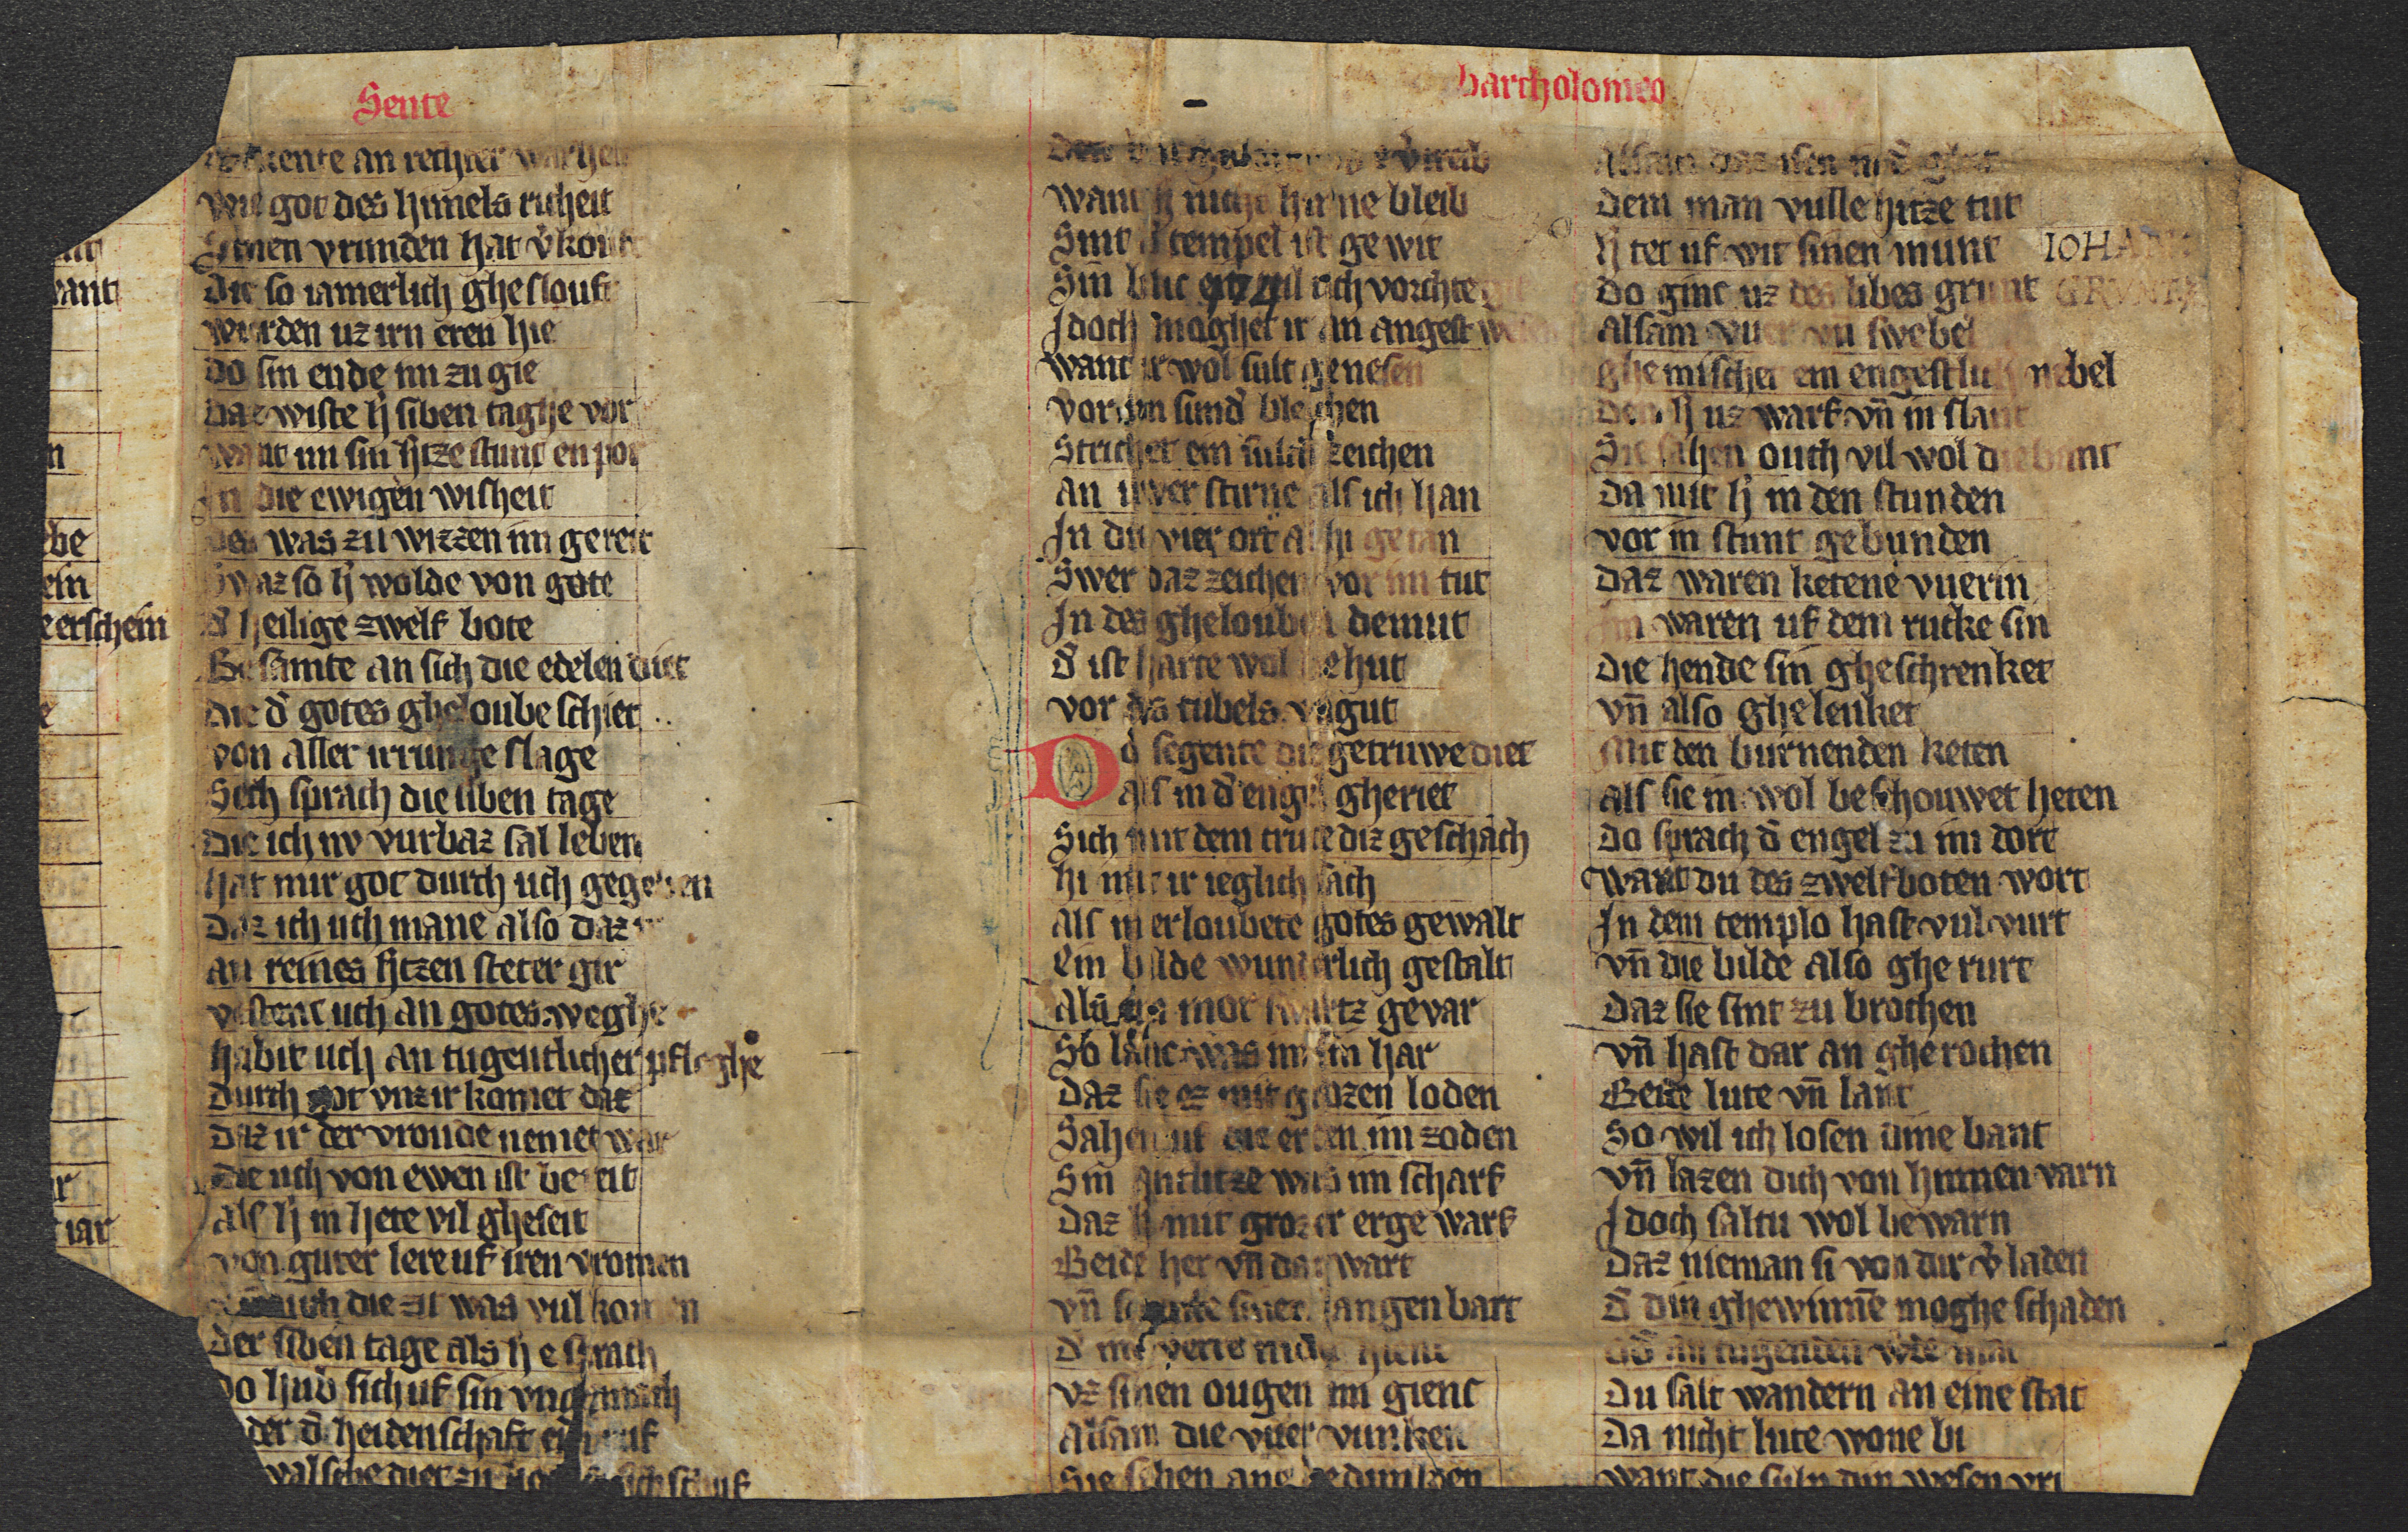 Sente
bartholomeo
an rechter warheit
wie got des himels richeit
Sinen vrunden hat v̾kouft
Die so iamerlich gheslouft
wurden uz irn eren hie
Do sin ende im zu gie
Daz wiste h̾ siben taghe vor
want im sin h̾tze stunt enpor
In die ewigen wisheit
Des was zu wizzen im gereit
Swaz so h̾ wolde von gote
D̾ heilige zwelf bote
Besamte an sich die edelen diet
Die d̾ gotes gheloube schiet
von aller irrunge slage
Sich sprach die siben tage
Die ich nv vurbaz sal leben
hat mir got durch uch gegeben
Daz ich uch mane also daz ir
an reines h̾tzen steter gir
vestent uch an gotes weghe
habit uch an tugentlicher pfleghe
Durch got vnz ir komet dar
Daz ir der vroude nemet war
Die uch von ewen ist bereit
Als h̾ in hete vil gheseit
von guter lere uf iren vromen
die zit was vul komen
Der siben tage als he sprach
Do hub sich uf sin vngemach
der d̾ heidenschaft
valsche diet zu
want h̾ nicht hir ne bleib
Sint d̾ tempel ist gewit
Sin blic uch vorchte git
Idoch moghet ir an angest wesen
want ir wol sult genesen
vor im sund̾ bleichen
Strichet ein sulch zeichen
an uwer stirne als ich han
In die vier ort alhi getan
Swer daz zeichen vor im tut
In des ghelouben demut
D̾ ist harte wol behut
vor des tubels vngut
Do segente die getruwe diet
als in d̾ engel gheriet
Sich mit dem cruce diz geschach
hi mite ir ieglich sach
Als in erloubete gotes gewalt
Ein bilde wunderlich gestalt
Als ein mor swartz gevar
So lanc was im sin har
Daz sie ez mit grozen loden
Sahen uf die erden im zoden
Sin antlitze was im scharf
Daz h̾ mit grozer erge warf
Beide her vn̄ dar wart
vn̄ siner langen bart
D̾ im verre nider hienc
vz sinen ougen im gienc
Alsam die vuer vunken
Sie sehen ane bedunken
Alsam daz isen in d̾ glut
Dem man vulle hitze tut
h̾ tet uf wit sinen munt
IOHANN
Do ginc uz des libes grunt
GRVNT
alsam vuer vn̄ swebel
ghemischet ein engestlich nebel
Den h̾ uz warf vn̄ in slant
Sie sahen ouch vil wol die bant
Da mit h̾ in den stunden
vor in stunt gebunden
Daz waren ketene vuerin
Im waren uf dem rucke sin
Die hende sin gheschrenket
vn̄ also ghelenket
Mit den burnenden keten
Als sie in wol beschouwet heten
Do sprach d̾ engel zu im dort
want du des zwelfboten wort
In dem templo hast vulvurt
vn̄ die bilde also gherurt
Daz sie sint zu brochen
vn̄ hast dar an gherochen
Beide lute vn̄ lant
So wil ich losen dine bant
vn̄ lazen dich von hinnen varn
Idoch saltu wol bewarn
Daz nieman si von dir v̾laden
D̾ din ghewinne moghe schaden
od̾ an tugenden
Du salt wandern an eine stat
Da nicht lute wone bi
want die suln din wesen vri
vant
be
ein
erschein
iar